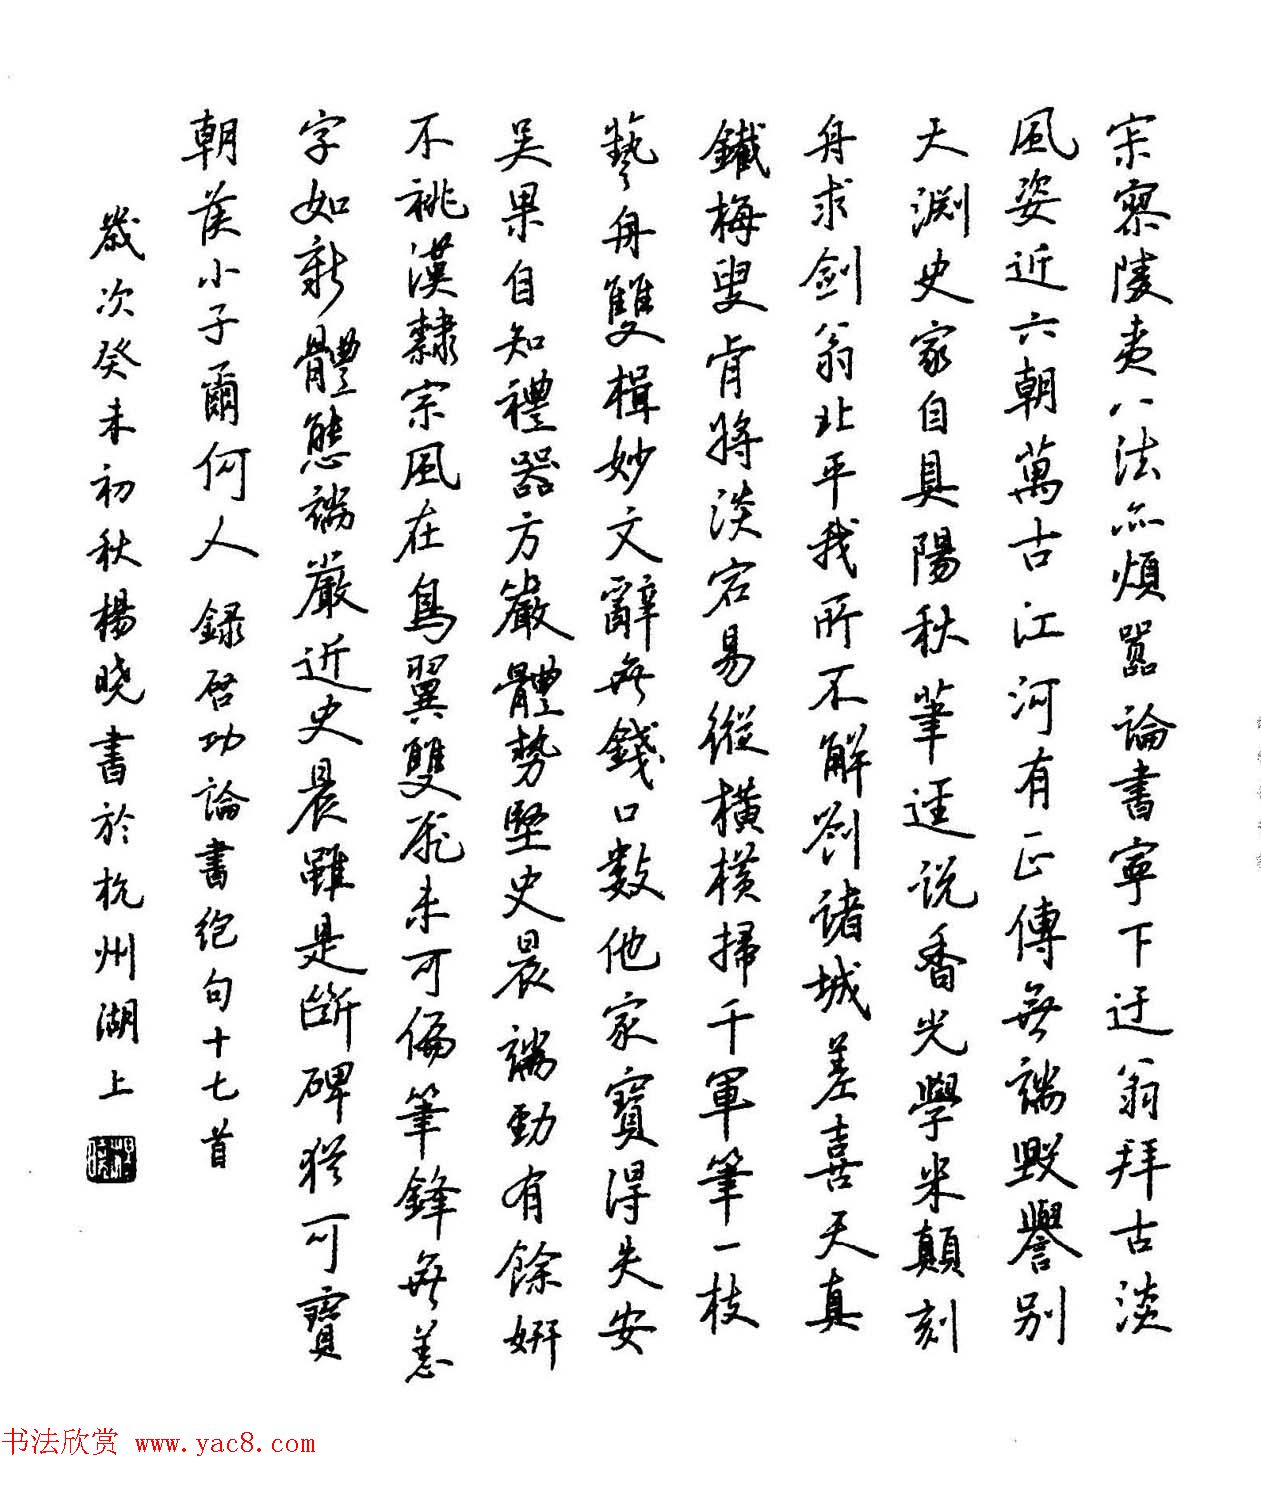 寂寥陵夷八法亦煩囂論書寧下迂翁拜古淡
風姿近六朝萬古江河有正傳無端毀譽別
天淵史家自具陽秋筆逕說香光學米顛刻
舟求劍翁北平我所不解劉諸城差喜天真
鐵梅叟肯將淡宕易縱橫橫掃千軍筆一枝
藝舟雙楫妙文辭無錢口數他家寶得失安
吳果自知禮器方嚴體勢堅史晨端勁有餘妍
不祧漢隸宗風在鳥翼雙飛未可偏筆鋒無恙
字如新體態端嚴近史晨雖是斷碑猶可寶
朝侯小子爾何人 録啓功論書絕句十七首
歲次癸未初秋楊曉書於杭州湖上
书法欣赏 www.yac8.com